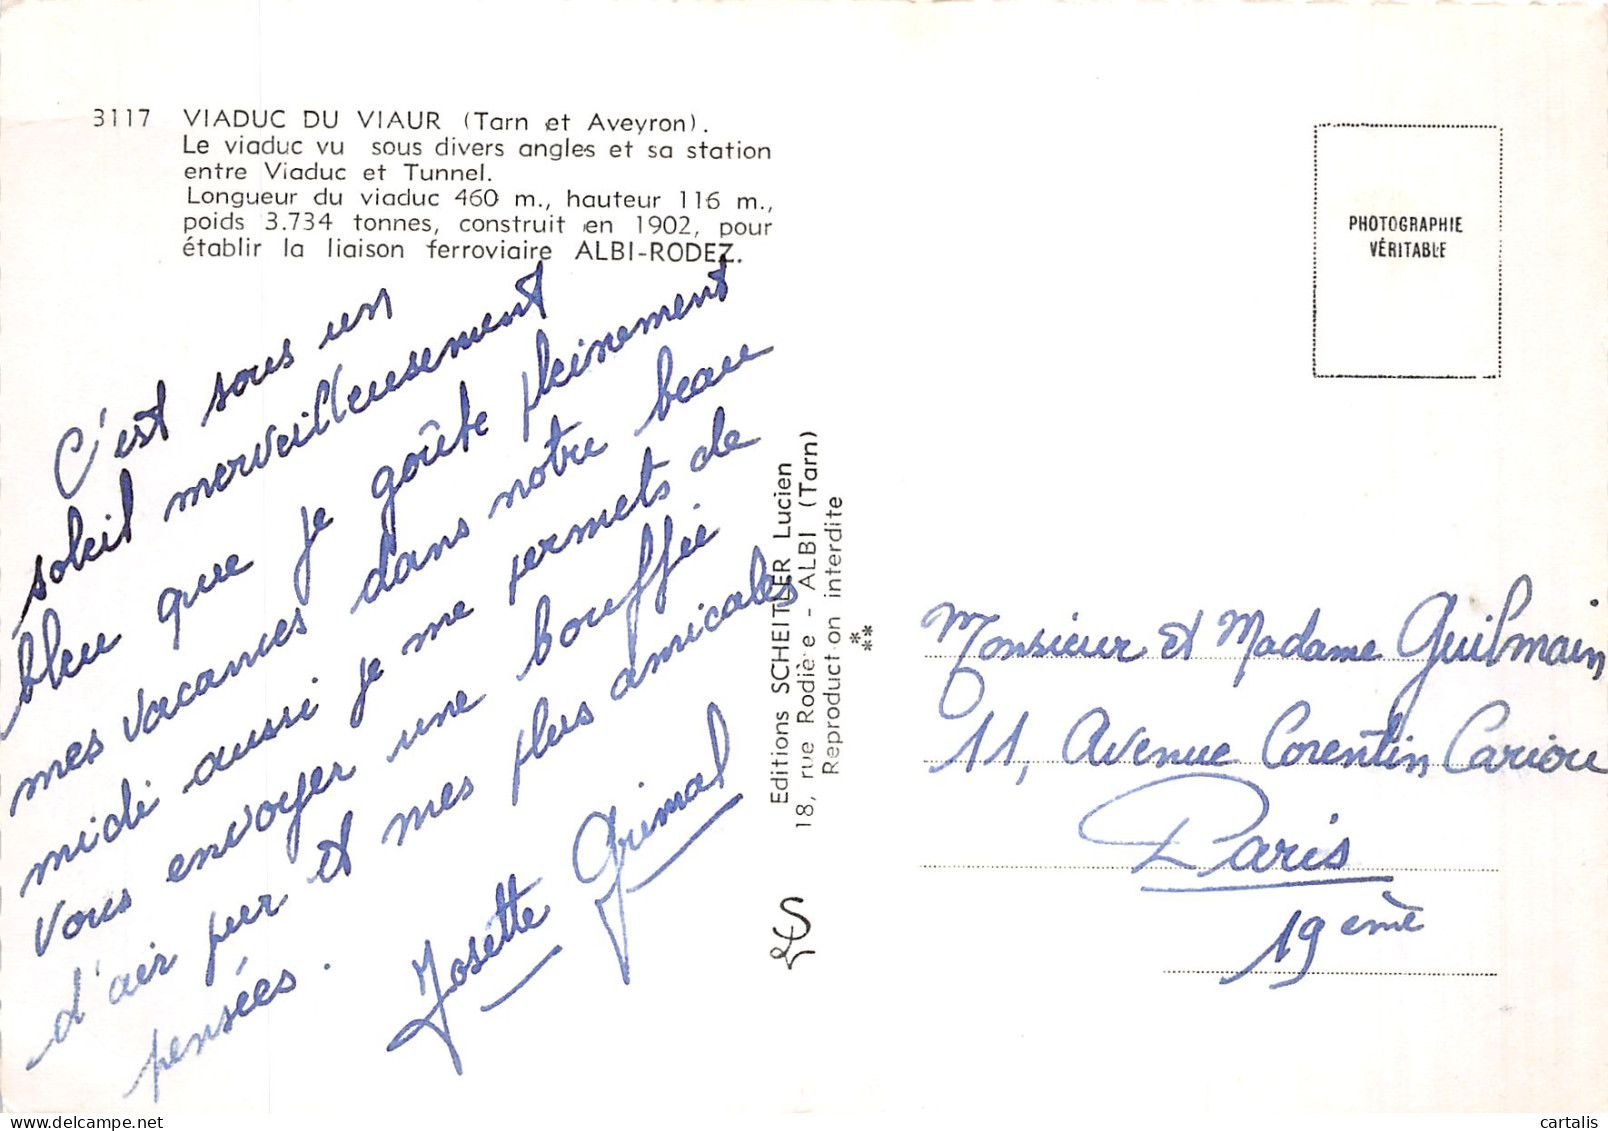 3117 VIADUC DU VIAUR (Tarn et Aveyron).
Le viaduc vu sous divers angles et sa station
entre Viaduc et Tunnel.
Longueur du viaduc 460 m., hauteur 116 m.,
poids 3.734 tonnes, construit en 1902, pour
établir la liaison ferroviaire ALBI-RODEZ.
C'est sous un
soleil merveilleusement
bleu que je goûte pleinement
mes vacances dans notre beau
midi aussi je me permets de
vous envoyer une bouffée
d'air pur et mes plus amicales
pensées.
Josette Grimal
Editions SCHEITLER Lucien
18, rue Rodière - ALBI (Tarn)
Reproduction interdite
***
PHOTOGRAPHIE
VÉRITABLE
Monsieur et Madame Guilmain
11, Avenue Corentin Cariou
Paris
19ème
cartalis